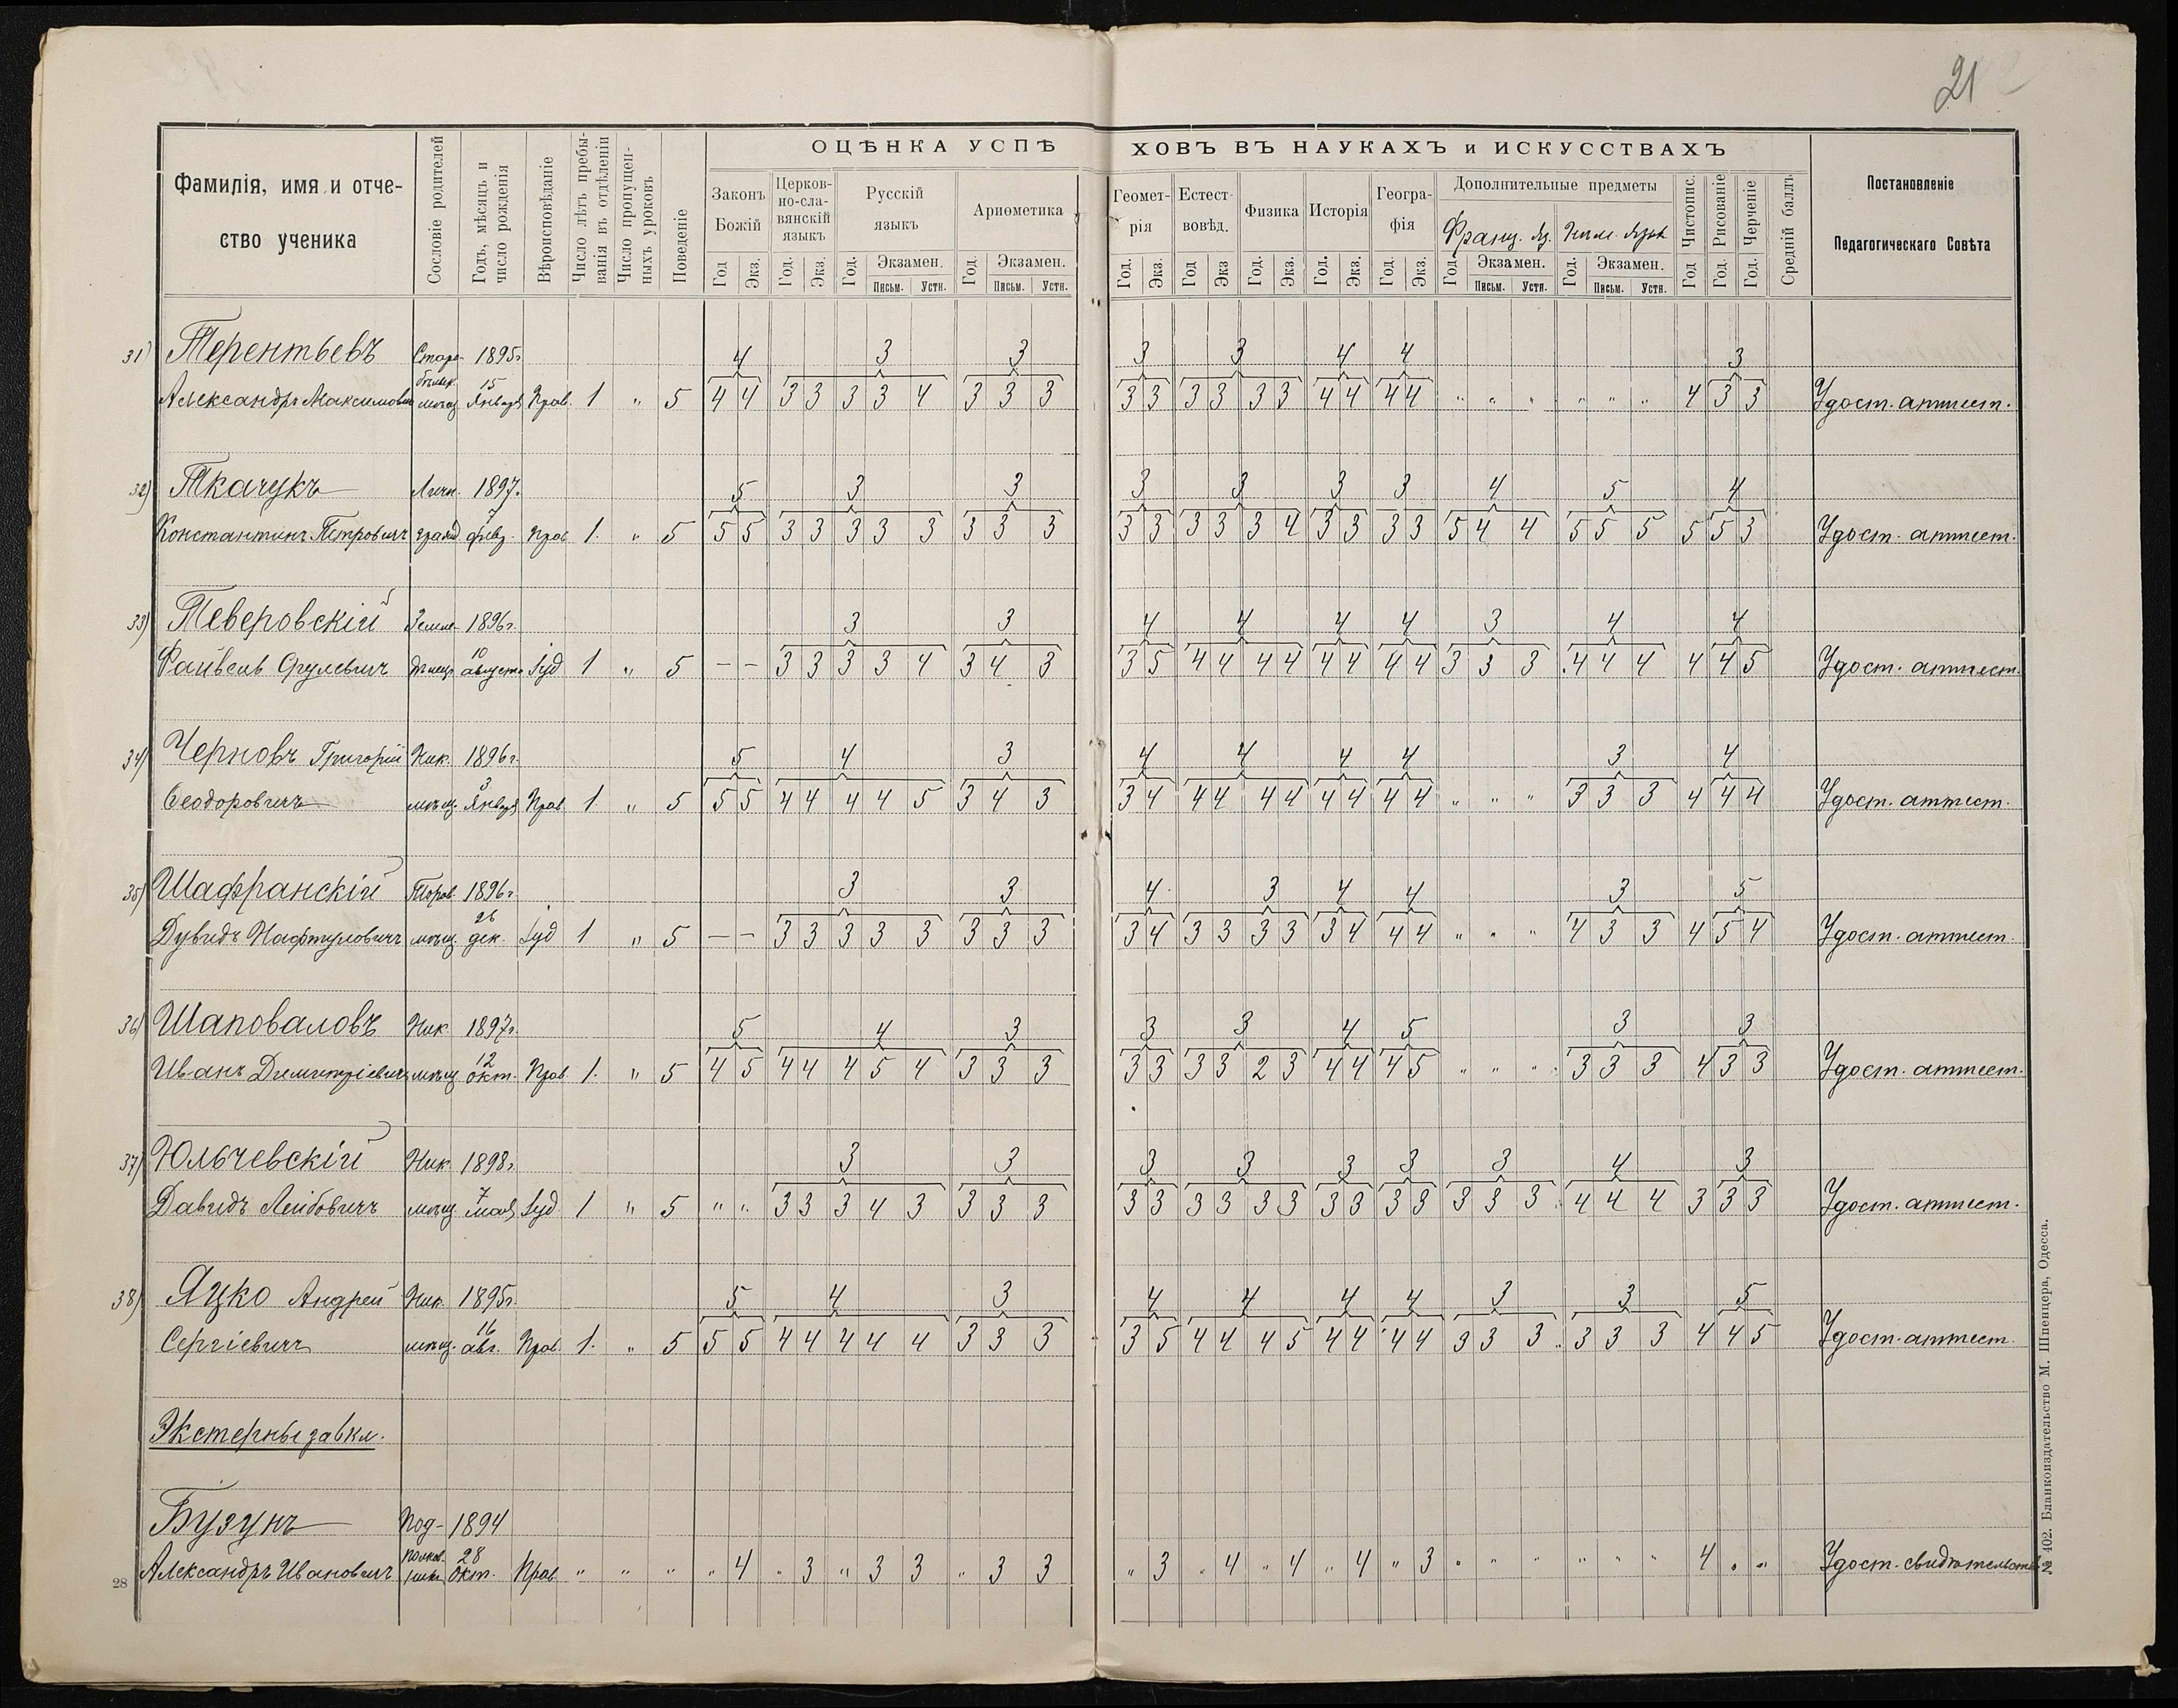 21
ОЦѢНКА УСПѢ
ХОВЪ ВЪ НАУКАХЪ и ИСКУССТВАХЪ
Фамилія, имя и отче-
ство ученика
Сословіе родителей
Годъ, мѣсяцъ и
число рожденія
Вѣроисповѣданіе
Число лѣтъ пребы-
ванія въ отдѣленіи
Число пропущен-
ныхъ уроковъ
Поведеніе
Законъ
Божій
Церков-
но-сла-
вянскій
языкъ
Русскій
языкъ
Ариѳметика
Геомет-
рія
Естест-
вовѣд.
Физика
Исторія
Геогра-
фія
Дополнительные предметы
Франц. яз.
Нѣм. языкъ
Чистопис.
Рисованіе
Черченіе
Средній баллъ
Постановленіе
Педагогическаго Совѣта
Год Экз. Год. Экз. Год. Экзамен. Письм. Устн. Год. Экзамен. Письм. Устн.
Год. Экз. Год Экз Год. Экз. Год. Экз. Год Экз. Год Экзамен. Письм. Устн. Год. Экзамен. Письм. Устн. Год Год. Год.
31) Терентьевъ 1895г. 4 3 3 3 3 4 4 3
15
Александръ Максимович Января Прав. 1 " 5 4 4 3 3 3 3 4 3 3 3 3 3 3 3 3 3 4 4 4 4 " " " " " " 4 3 3 Удост. аттест.
32) Ткачукъ Личн. 1897. 5 3 3 3 3 3 3 4 5 4
7
Константинъ Петровичъ гражд февр. Прав 1. " 5 5 5 3 3 3 3 3 3 3 3 3 3 3 3 3 4 3 3 3 3 5 4 4 5 5 5 5 5 3 Удост. аттест.
33) Теверовскій Земле- 1896г. 3 3 4 4 4 4 3 4 4
10
Файвель дѣлец августа Іуд 1 " 5 – – 3 3 3 3 4 3 4 3 3 5 4 4 4 4 4 4 4 4 3 3 3 4 4 4 4 4 5 Удост. аттест.
34) Черновъ Григорій Ник. 1896г. 5 4 3 4 4 4 4 3 4
3
Ѳеодоровичъ мѣщ. Января Прав. 1. " 5 5 5 4 4 4 4 5 3 4 3 3 4 4 4 4 4 4 4 4 4 " " " 3 3 3 4 4 4 Удост. аттест.
35) Шафранскій 1896г. 3 3 4 3 4 4 3 5
26
Дувидъ Нафтуловичъ мѣщ. дек. Іуд 1 " 5 – – 3 3 3 3 3 3 3 3 3 4 3 3 3 3 3 4 4 4 " " " 4 3 3 4 5 4 Удост. аттест.
36) Шаповаловъ Ник 1897г. 5 4 3 3 3 4 5 3 3
12
Иванъ Димитріевичъ мѣщ окт. Прав 1. " 5 4 5 4 4 4 5 4 3 3 3 3 3 3 3 2 3 4 4 4 5 " " " 3 3 3 4 3 3 Удост. аттест.
37) Юльчевскій Ник 1898г. 3 3 3 3 3 3 3 4 3
7
Давидъ Лейбовичъ мѣщ Мая Іуд. 1 " 5 " " 3 3 3 4 3 3 3 3 3 3 3 3 3 3 3 3 3 3 3 3 3 4 4 4 3 3 3 Удост. аттест.
38) Яцко Андрей Ник. 1895г. 5 4 3 4 4 4 4 3 3 5
16
Сергіевичъ мѣщ. авг. Прав. 1. " 5 5 5 4 4 4 4 4 3 3 3 3 5 4 4 4 5 4 4 4 4 3 3 3 3 3 3 4 4 5 Удост. аттест.
Экстерны за 6 кл.
Бузунъ Под- 1894
полков- 28
Александръ Ивановичъ ника окт. Прав " " " " 4 " 3 " 3 3 " 3 3 " 3 " 4 " 4 " 4 " 3 " " " " " " 4 " " Удост. свидѣтельства
28
№ 402. Бланкоиздательство М. Шпенцера, Одесса.